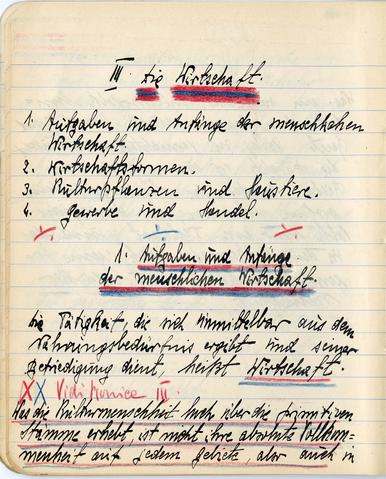 III. Die Wirtschaft.
1. Aufgaben und Anfänge der menschlichen
Wirtschaft.
2. Wirtschaftsformen.
3. Kulturpflanzen und Haustiere.
4. Gewerbe und Handel.
1. Aufgaben und Anfänge
der menschlichen Wirtschaft.
Die Tätigkeit, die sich unmittelbar aus dem
Nahrungsbedürfnis ergibt und seiner
Befriedigung dient, heißt Wirtschaft.
XX Vidi III.
Was die Kulturmenschheit hoch über die primitiven
Stämme erhebt, ist nicht ihre absolute Vollkom-
menheit auf jedem Gebiete, aber auch in